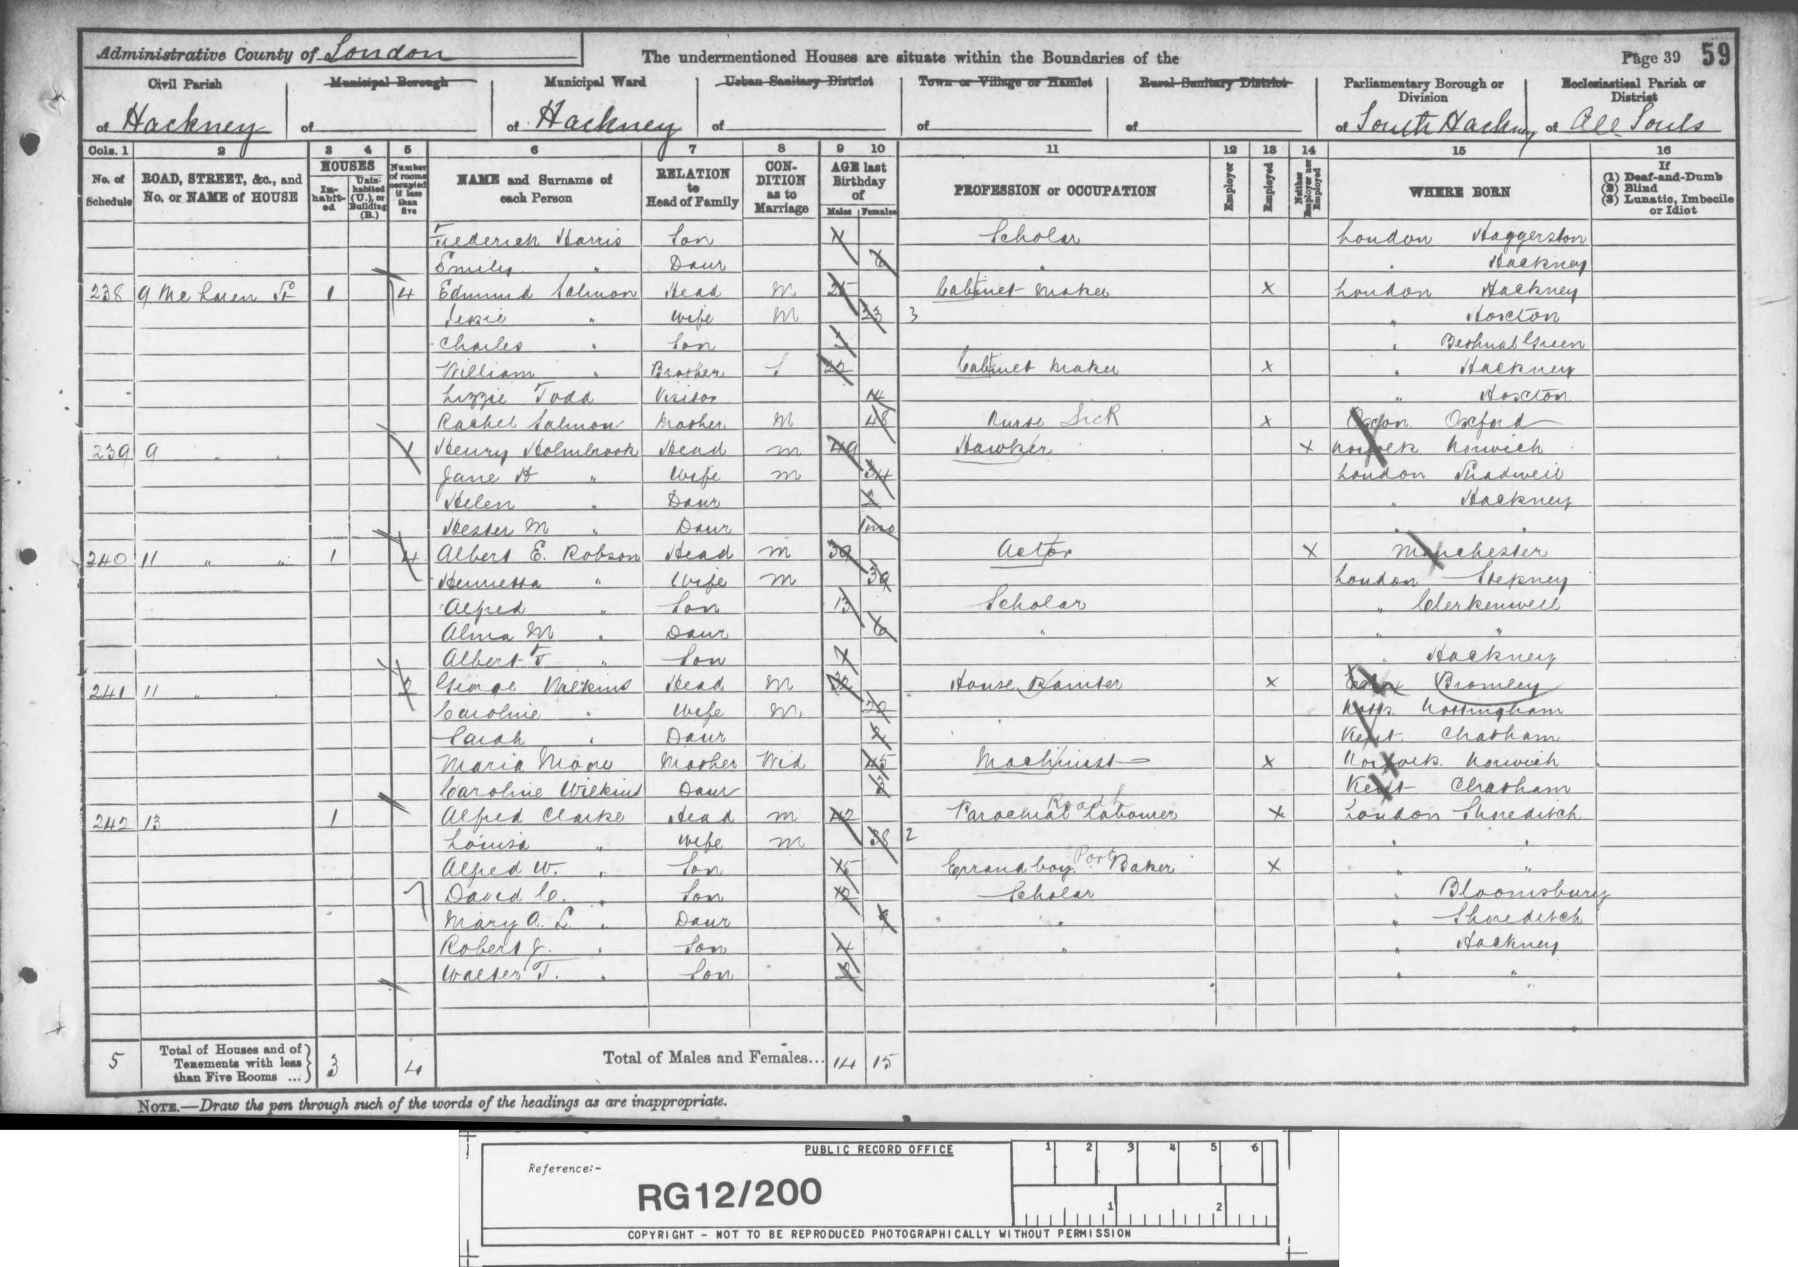 Administrative County of London
The undermentioned Houses are situate within the Boundaries of the
Page 39 59
Civil Parish
Municipal Borough
Municipal Ward
Urban Sanitary District
Town or Village or Hamlet
Rural Sanitary District
Parliamentary Borough or Division
Ecclesiastical Parish or District
of Hackney of of Hackney of of of of South Hackney of All Souls
Cols. 1 2 3 4 5 6 7 8 9 10 11 12 13 14 15 16
No. of Schedule
ROAD, STREET, &c., and No. or NAME of HOUSE
HOUSES
Inhabited
Uninhabited (U.), or Building (B.)
Number of rooms occupied if less than five
NAME and Surname of each Person
RELATION to Head of Family
CONDITION as to Marriage
AGE last Birthday of
Males Females
PROFESSION or OCCUPATION
Employer
Employed
Neither Employer nor Employed
WHERE BORN
If
(1) Deaf-and-Dumb
(2) Blind
(3) Lunatic, Imbecile or Idiot
Frederick Harris Son Scholar London Haggerston
Emily " Daur 6 " " Hackney
238 9 St 1 4 Edmund Salmon Head M 25 Cabinet Maker x London Hackney
Jessie " Wife M 23 3 " Hoxton
Charles " Son " Bethnal Green
William " Brother S 22 Cabinet Maker x " Hackney
Lizzie Todd Visitor 14 " Hoxton
Rachel Salmon Mother M 48 Nurse Sick x Oxon Oxford
239 9 " " Henry Holmbrook Head m 49 Hawker x Norfolk Norwich
Jane H " Wife m 34 London Shadwell
Helen " Daur 2 " Hackney
Hester M " Daur 1mo " "
240 11 " " 1 4 Albert E. Robson Head m 39 Actor x Manchester
Henrietta " Wife m 39 London Stepney
Alfred " Son 13 Scholar " Clerkenwell
Alma M " Daur 6 " " "
Albert T " Son " Hackney
241 11 " " 2 George Wilkins Head M 32 House Painter x Bromley
Caroline " Wife M Notts Nottingham
Sarah " Daur Kent Chatham
Maria Moore Mother Wid 45 Machinist x Norfolk Norwich
Caroline Wilkins Daur Kent Chatham
242 13 1 Alfred Clarke Head m 42 Parochial Road Labourer x London Shoreditch
Louisa " Wife m 38 2 " "
Alfred W. " Son 15 Errand boy Baker x " "
David C. " Son 12 Scholar " Bloomsbury
Mary A. L. " Daur " " " Shoreditch
Robert J. " Son " " Hackney
Walter T. " Son " "
5 Total of Houses and of Tenements with less than Five Rooms ... 3 4 Total of Males and Females... 14 15
NOTE.—Draw the pen through such of the words of the headings as are inappropriate.
PUBLIC RECORD OFFICE
1 2 3 4 5 6
Reference:-
RG12/200
1 2
COPYRIGHT - NOT TO BE REPRODUCED PHOTOGRAPHICALLY WITHOUT PERMISSION